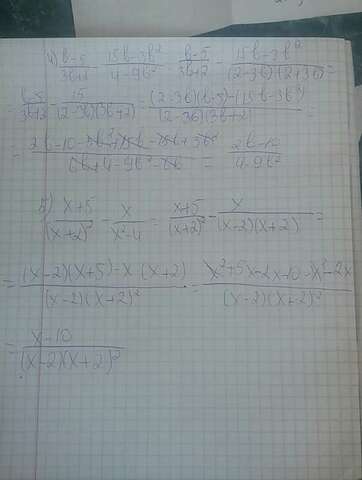 4) (b-5)/(3b+2) - (15b-3b²)/(4-9b²) = (b-5)/(3b+2) - (15b-3b²)/((2-3b)(2+3b)) =
(b-5)/(3b+2) - 15/((2-3b)(3b+2)) = ((2-3b)(b-5)-(15b-3b²))/((2-3b)(3b+2)) =
= /(6b+4-9b²-6b) = (2b-10)/(4-9b²)
5) (x+5)/(x+2)² - x/(x²-4) = (x+5)/(x+2)² - x/((x-2)(x+2)) =
= ((x-2)(x+5)-x(x+2))/((x-2)(x+2)²) = (x²+5x-2x-10-x²-2x)/((x-2)(x+2)²)
= (x-10)/((x-2)(x+2)²)